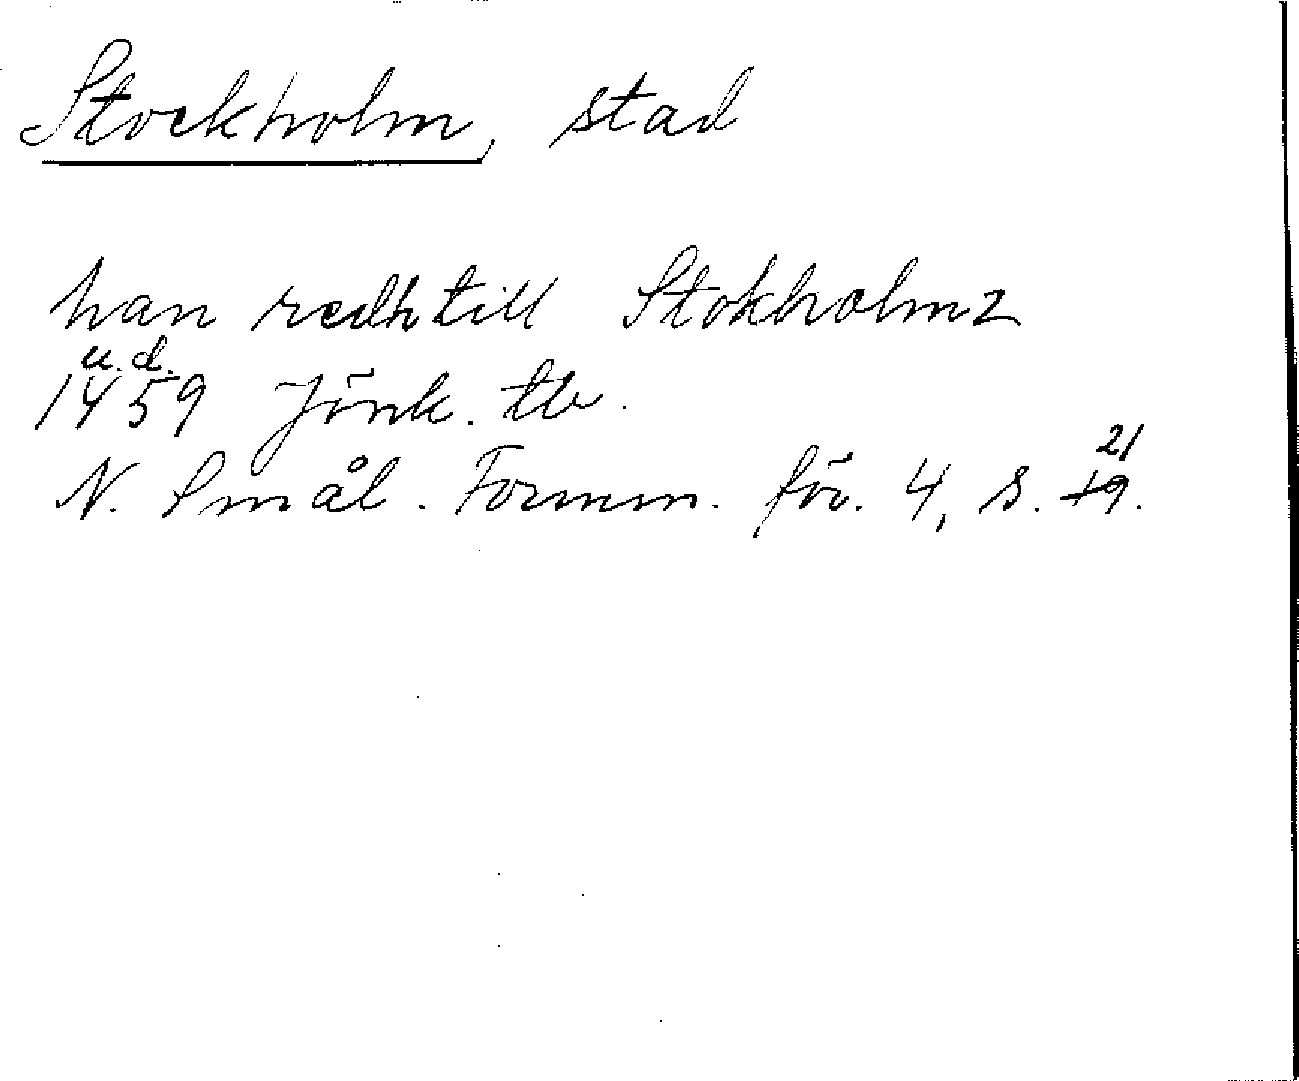 Stockholm, stad
han redh till Stokholmz
u.d.
1459 Jönk. tb.
21
N. Smål. Fornm. för. 4, s. 19.